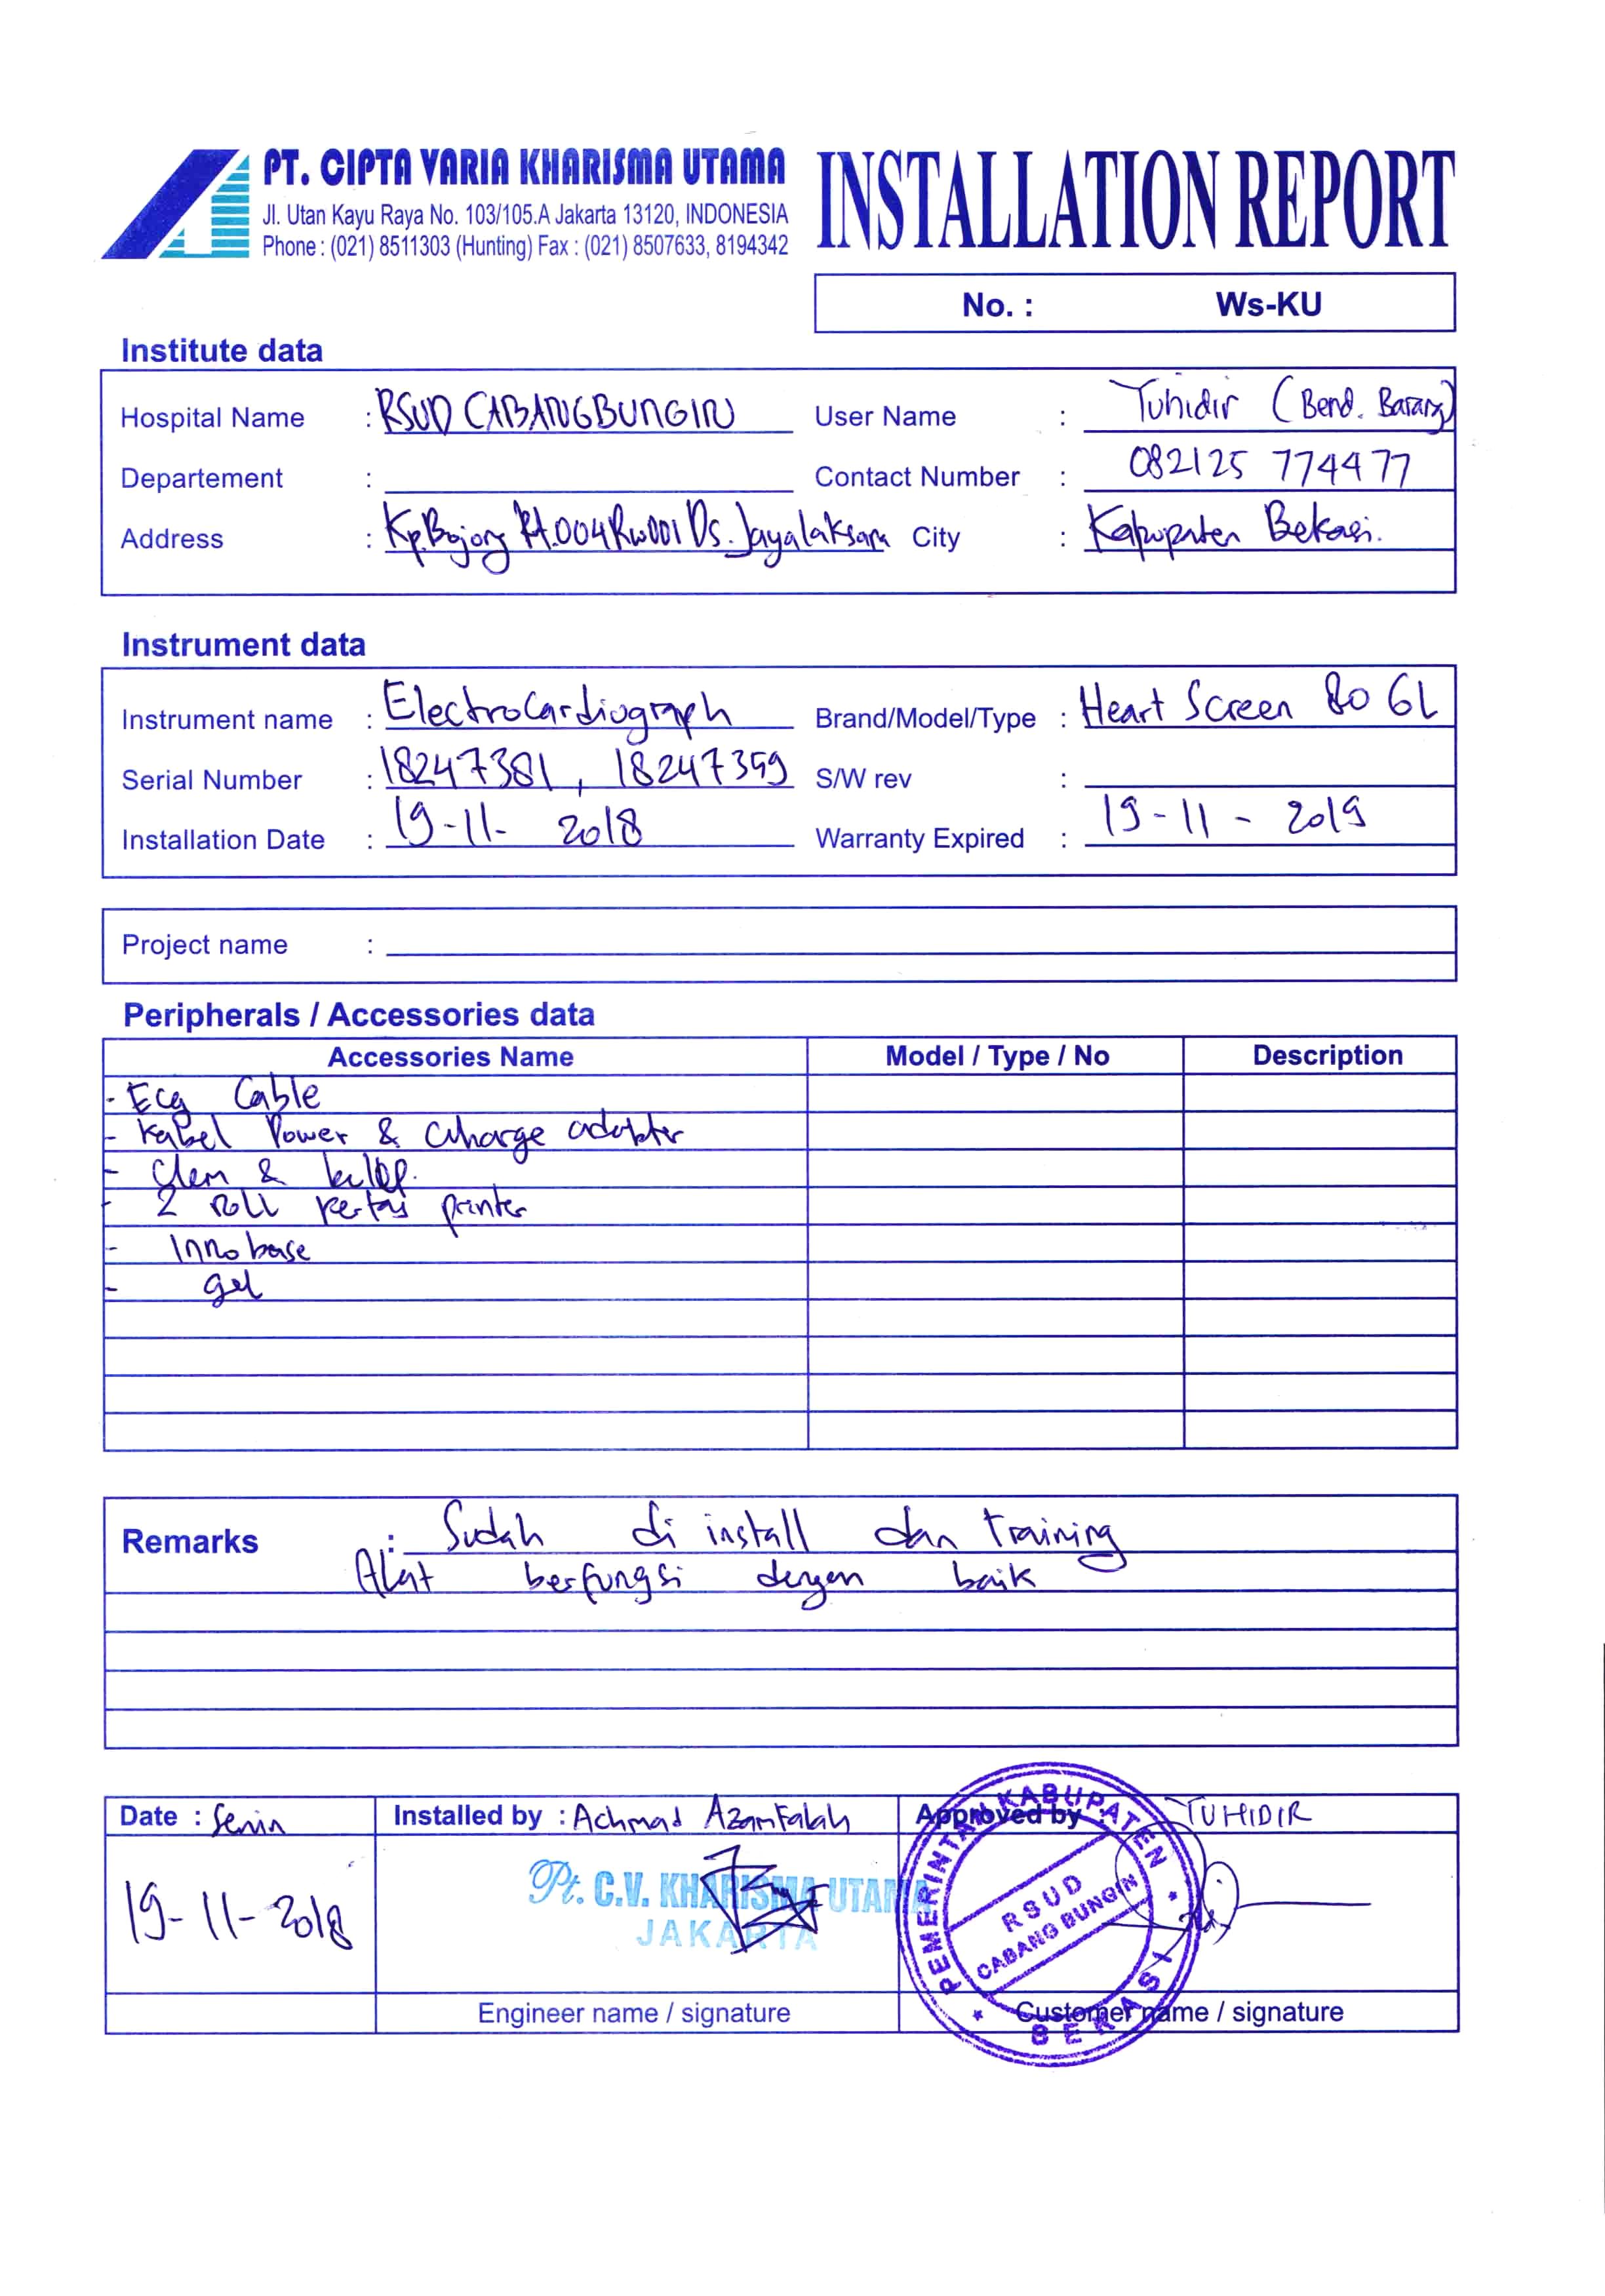 PT. CIPTA VARIA KHARISMA UTAMA
Jl. Utan Kayu Raya No. 103/105.A Jakarta 13120, INDONESIA
Phone : (021) 8511303 (Hunting) Fax : (021) 8507633, 8194342
INSTALLATION REPORT
No. : Ws-KU
Institute data
Hospital Name : RSUD CABANGBUNGIN User Name : Tuhidir (Bend. Barang)
Departement : Contact Number : 082125 774477
Address : Kp.Bojong Rt.004Rw001 Ds. Jayalaksana City : Kabupaten Bekasi.
Instrument data
Instrument name : Electrocardiograph Brand/Model/Type : Heart Screen 80 GL
Serial Number : 18247381, 18247359 S/W rev :
Installation Date : 19-11- 2018 Warranty Expired : 19-11-2019
Project name :
Peripherals / Accessories data
Accessories Name Model / Type / No Description
- Ecg Cable
- Kabel Power & Charge adapter
- Clem &
- 2 roll kertas printer
- Innobase
- gel
Remarks : Sudah di install dan training
Alat berfungsi dengan baik
Date : Senin Installed by : Achmad Azamfalah Approved by TUHIDIR
19-11-2018
Pt. C.V. KHARISMA UTAMA
JAKARTA
PEMERINTAH KABUPATEN
RSUD
CABANG BUNGIN
BEKASI
Engineer name / signature Customer name / signature